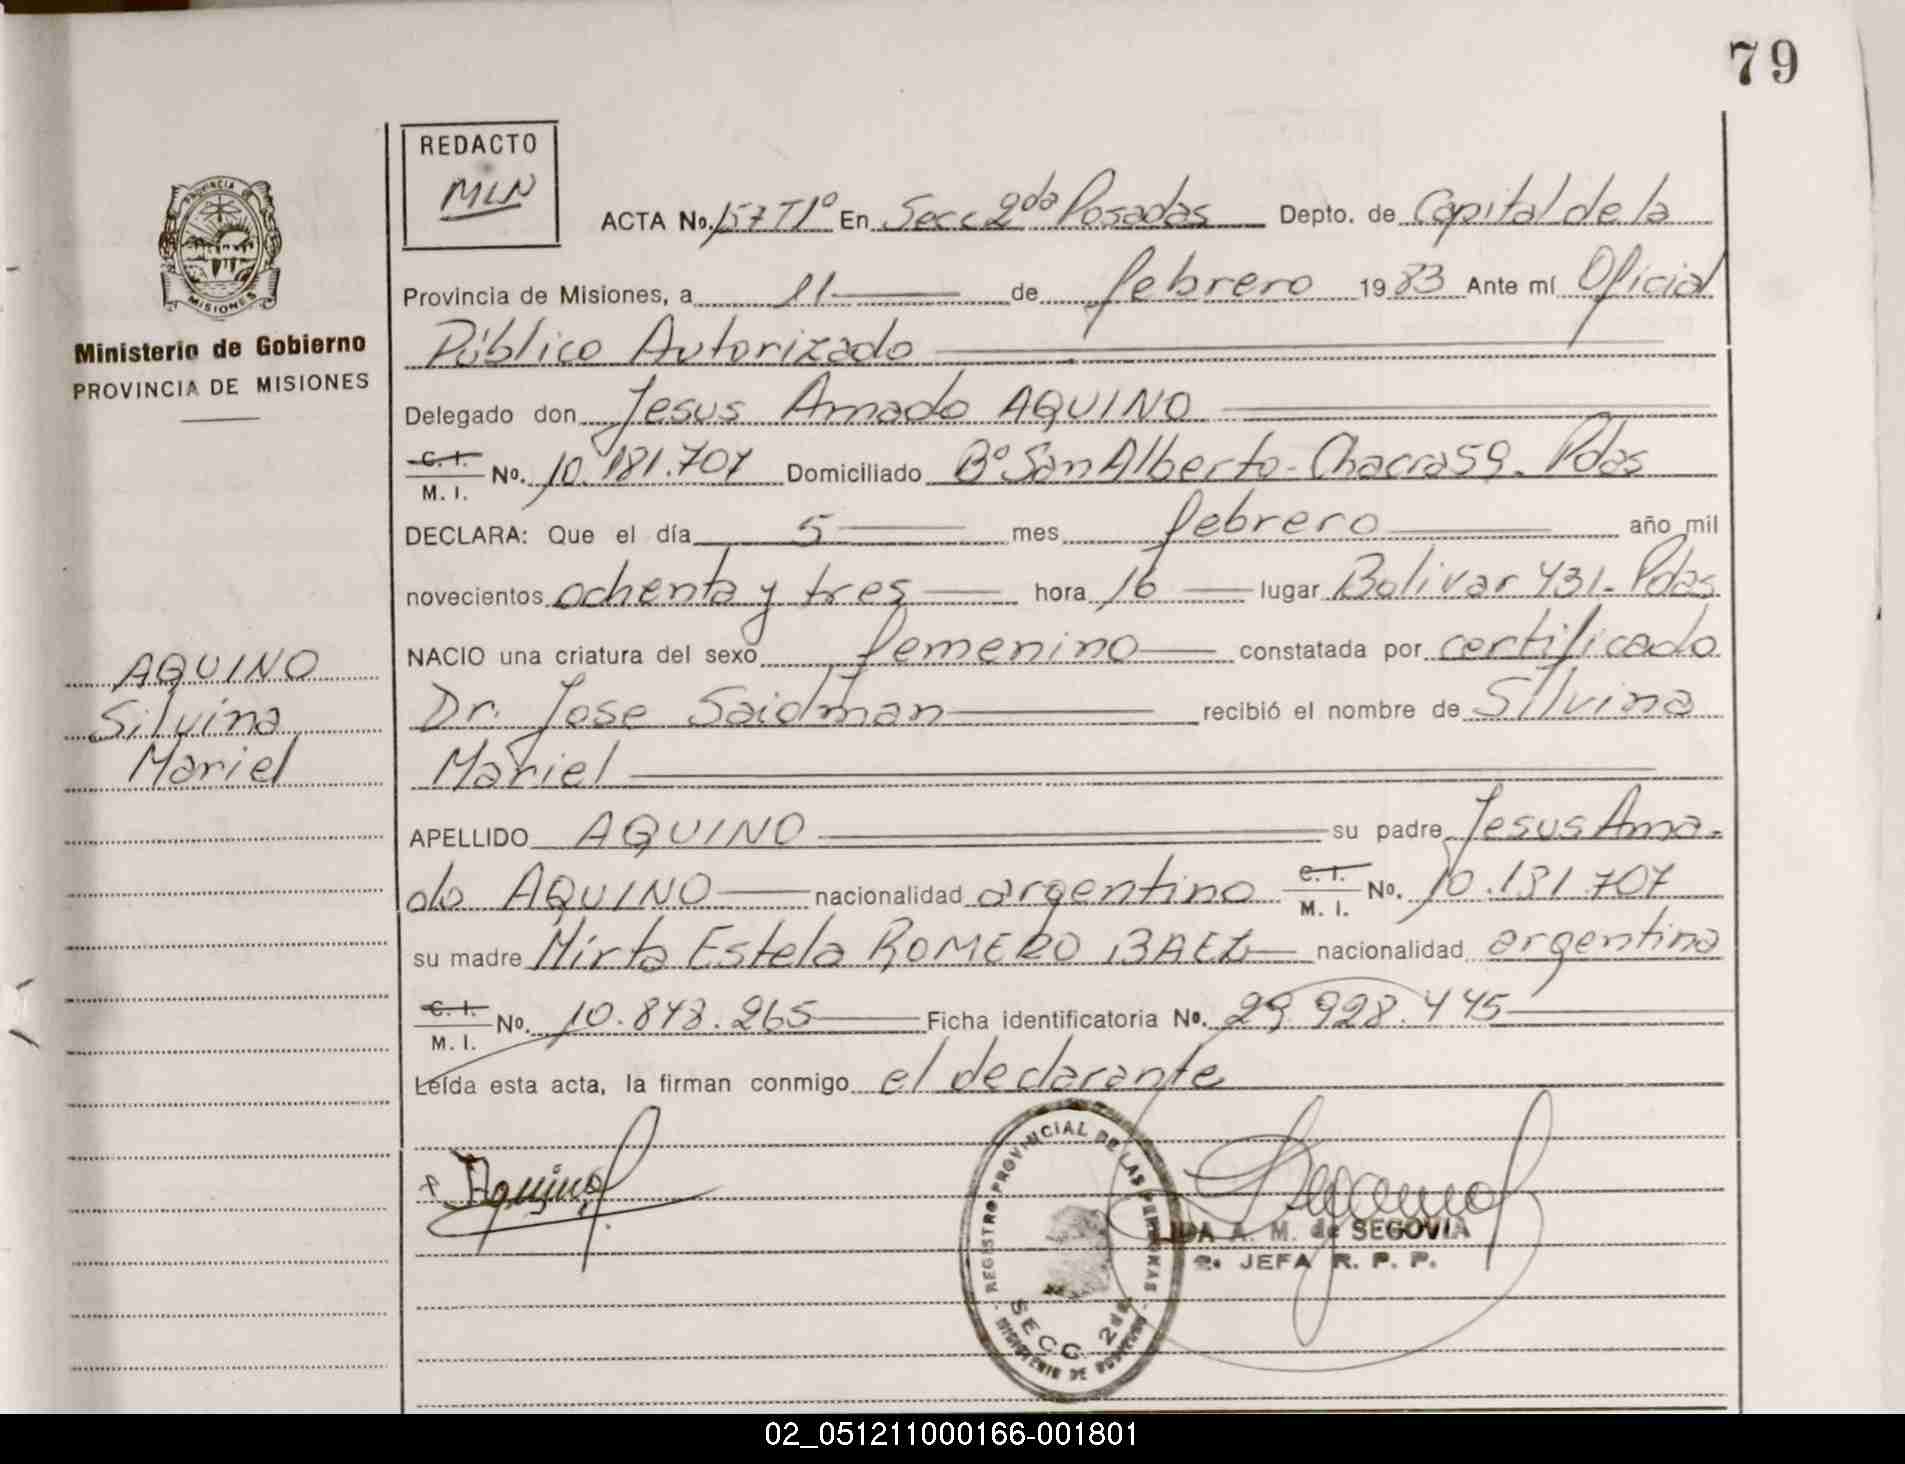 79
REDACTO
MLN
ACTA No. 157 T1º En Secc 2da Posadas Depto. de Capital de la
Provincia de Misiones, a 11 de febrero 1983 Ante mí Oficial
Público Autorizado
Delegado don Jesus Amado AQUINO
C. I. M. I. No. 10.181.707 Domiciliado Bº San Alberto - Chacra 59 - Pdas
DECLARA: Que el día 5 mes febrero año mil
novecientos ochenta y tres hora 16 lugar Bolivar 431 - Pdas
NACIO una criatura del sexo femenino constatada por certificado
Dr. Jose Saidman recibió el nombre de Silvina
Mariel
APELLIDO AQUINO su padre Jesus Ama-
do AQUINO nacionalidad argentino C. I. M. I. No. 10.181.707
su madre Mirta Estela ROMERO BAEZ nacionalidad argentina
C. I. M. I. No. 10.848.265 Ficha identificatoria No. 29.928.445
Leída esta acta, la firman conmigo el declarante
Aquino
LIDA A. M. de SEGOVIA
2. JEFA R. P. P.
REGISTRO PROVINCIAL DE LAS PERSONAS
SECC. 2da
MINISTERIO DE GOBIERNO
PROVINCIA DE
MISIONES
Ministerio de Gobierno
PROVINCIA DE MISIONES
AQUINO
Silvina
Mariel
02_051211000166-001801